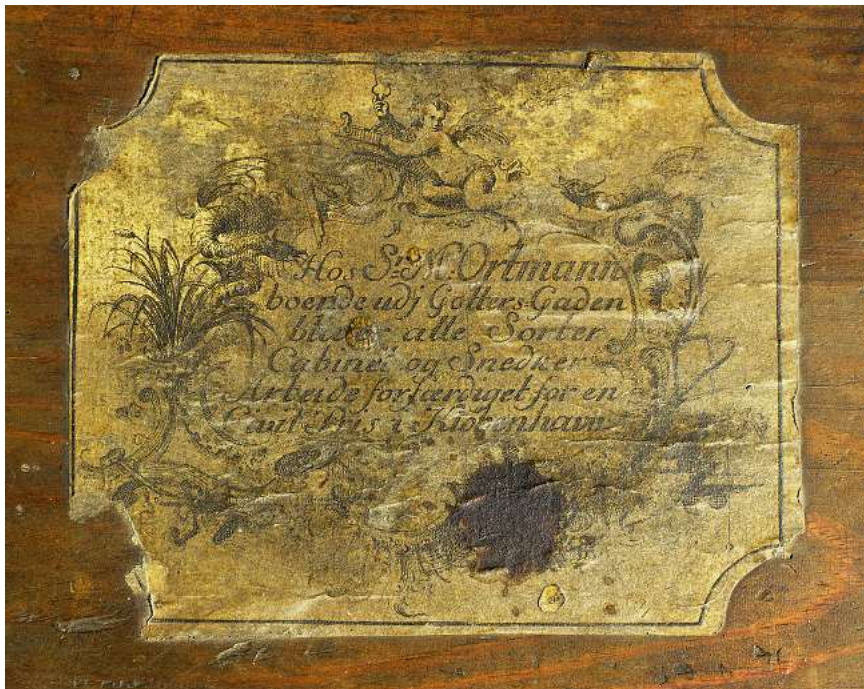 Hos Sr. M. Ortmann
boende udj Gotters Gaden
blifver alle Sorter
Cabinet og Snedker
Arbeide forfærdiget for en
Civil Pris i Kiöbenhavn